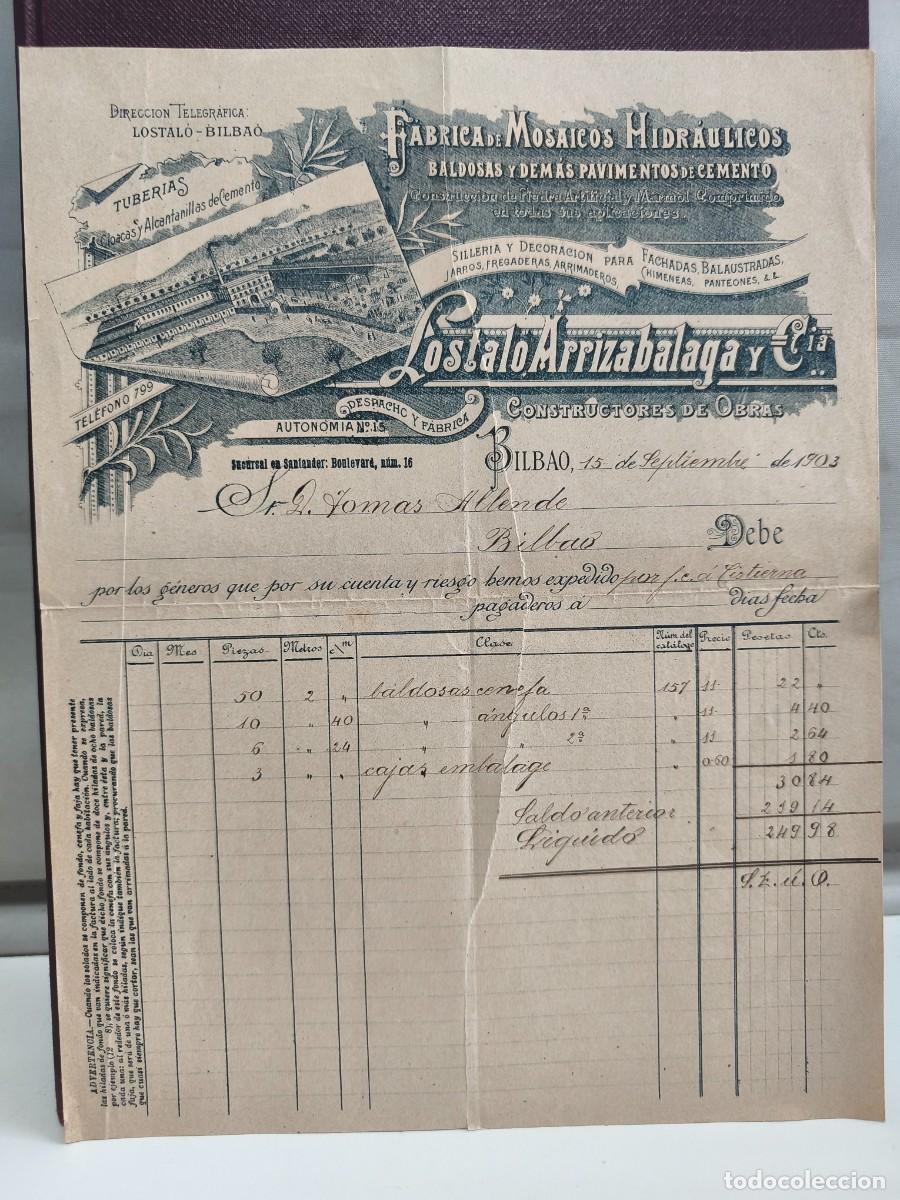 DIRECCION TELEGRÁFICA:
LOSTALÓ-BILBAO
FABRICA DE MOSAICOS HIDRÁULICOS
BALDOSAS Y DEMÁS PAVIMENTOS DE CEMENTO
Construcción de Piedra Artificial y Marmol Comprimido
en todas sus aplicaciones.
TUBERIAS
Cloacas y Alcantarillas de Cemento
SILLERIA Y DECORACION PARA FACHADAS, BALAUSTRADAS,
JARROS, FREGADERAS, ARRIMADEROS, CHIMENEAS, PANTEONES, &.&.
Lostaló, Arrizabalaga y Cia
CONSTRUCTORES DE OBRAS
TELÉFONO 799
DESPACHO Y FÁBRICA
AUTONOMIA Nº. 15
Sucursal en Santander: Boulevard, núm. 16
BILBAO, 15 de Septiembre de 1903
Sr. D. Tomas Allende
Bilbao Debe
por los géneros que por su cuenta y riesgo hemos expedido por f.c. á Cistierna
pagaderos á días fecha
Dia Mes Piezas Metros c/m Clase Núm. del catálogo Precio Pesetas Cts.
50 2 " baldosas cenefa 157 11- 22 "
10 " 40 " ángulos 1ª " 11- 4 40
6 " 24 " " 2ª " 11 2 64
3 " " cajas embalage " 0.60 1 80
30 84
Saldo anterior 219 14
Liquido 249 98
S.E.ú.O.
ADVERTENCIA.—Cuando los solados se componen de fondo, cenefa y faja hay que tener presente
las hiladas de fondo que van indicadas en la factura al lado de cada habitación. Cuando se expresa,
por ejemplo (12 8), se quiere significar que dicho fondo se compone de doce hiladas de ocho baldosas
cada una: al rededor de este fondo se coloca la cenefa con sus ángulos y, entre ésta y la pared, la
faja, que será de una ó más hiladas, según indique también la factura; procurando que las baldosas
que cuasi siempre hay que cortar, sean las que van arrimadas á la pared.
todocoleccion